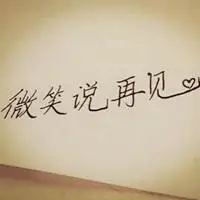 微笑说再见♡